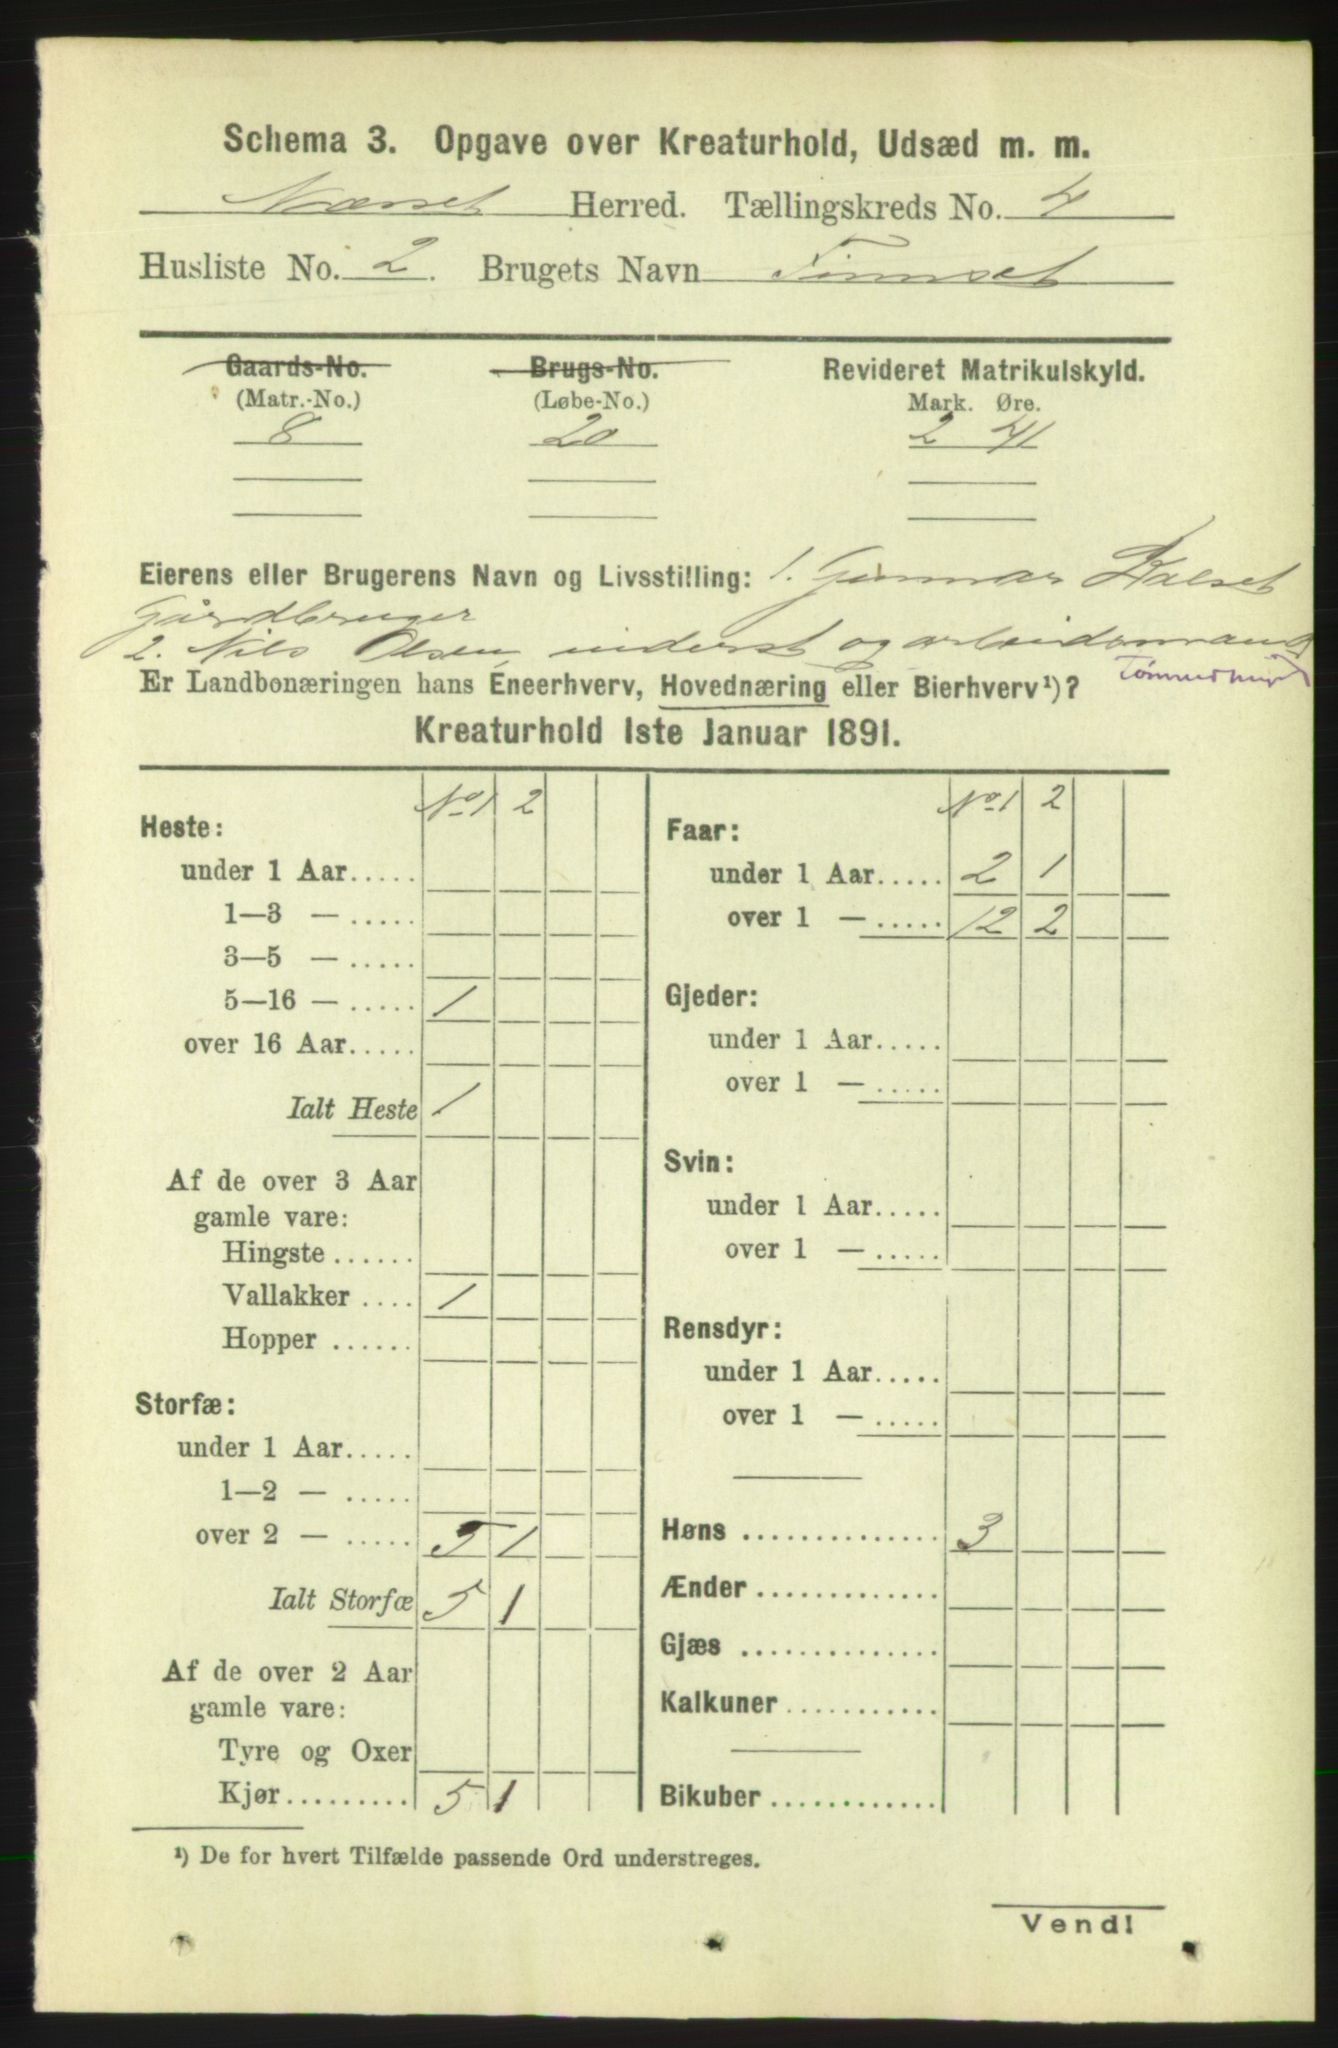 Schema 3. Opgave over Kreaturhold, Udsæd m. m.
Nesset Herred. Tællingskreds No. 4
Husliste No. 2. Brugets Navn Tornset
Gaards-No. Brugs-No. Revideret Matrikulskyld.
(Matr.-No.) (Løbe-No.) Mark. Øre.
8 20 2 41
Eierens eller Brugerens Navn og Livsstilling: 1. Gunnar Dalset
Gårdbruger
2. Nils Olsen, inderst og arbeidsmand
Er Landbonæringen hans Eneerhverv, Hovednæring eller Bierhverv¹)?
Kreaturhold 1ste Januar 1891.
No 1 2
Heste:
under 1 Aar.....
1—3 — .....
3—5 — .....
5—16 — ..... 1
over 16 Aar.....
Ialt Heste 1
Af de over 3 Aar
gamle vare:
Hingste ......
Vallakker .... 1
Hopper ......
Storfæ:
under 1 Aar.....
1—2 — .....
over 2 — ..... 5 1
Ialt Storfæ 5 1
Af de over 2 Aar
gamle vare:
Tyre og Oxer
Kjør......... 5 1
No 1 2
Faar:
under 1 Aar..... 2 1
over 1 — ..... 12 2
Gjeder:
under 1 Aar.....
over 1 — .....
Svin:
under 1 Aar.....
over 1 — .....
Rensdyr:
under 1 Aar.....
over 1 — .....
Høns .............. 3
Ænder .............
Gjæs ..............
Kalkuner ...........
Bikuber ............
¹) De for hvert Tilfælde passende Ord understreges.
Vend!